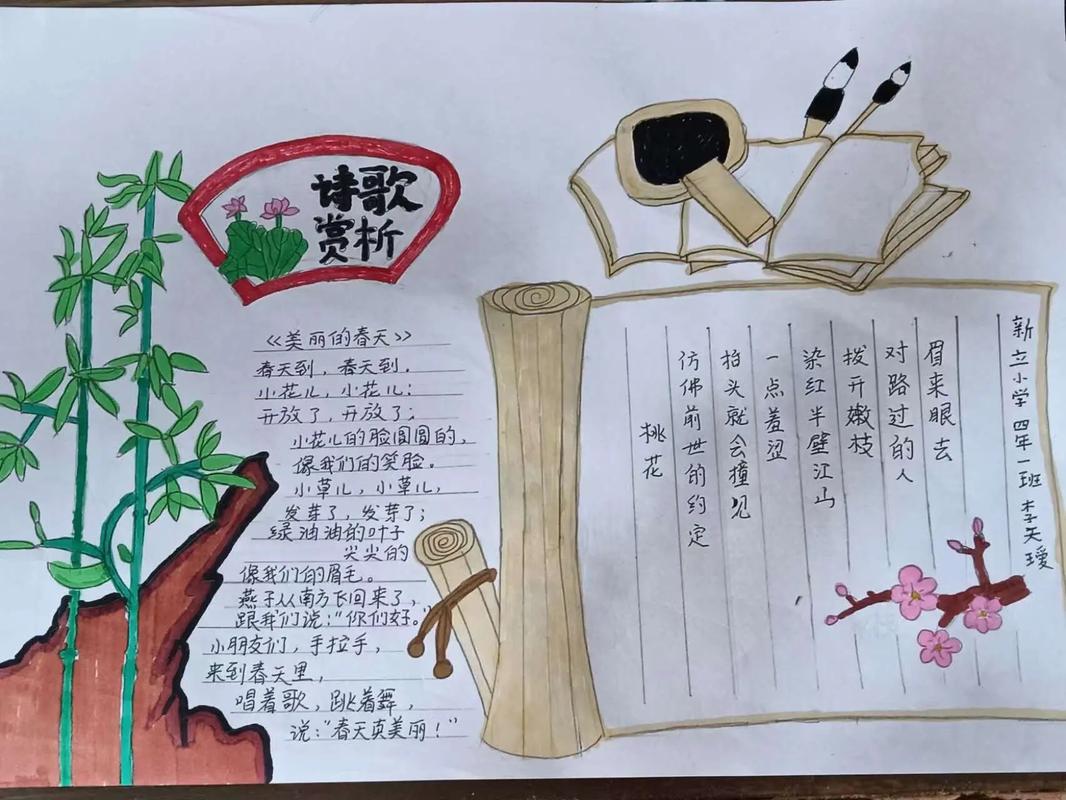 诗歌
赏析
《美丽的春天》
春天到，春天到。
小花儿，小花儿：
开放了，开放了；
小花儿的脸圆圆的，
像我们的笑脸。
小草儿，小草儿，
发芽了，发芽了；
绿油油的叶子
尖尖的
像我们的眉毛。
燕子从南方飞回来了，
跟我们说：“你们好。”
小朋友们，手拉手，
来到春天里，
唱着歌，跳着舞，
说：“春天真美丽！”
桃花
仿佛前世的约定
抬头就会撞见
一点羞涩
染红半壁江山
拨开嫩枝
对路过的人
眉来眼去
新立小学四年一班 李天瑷